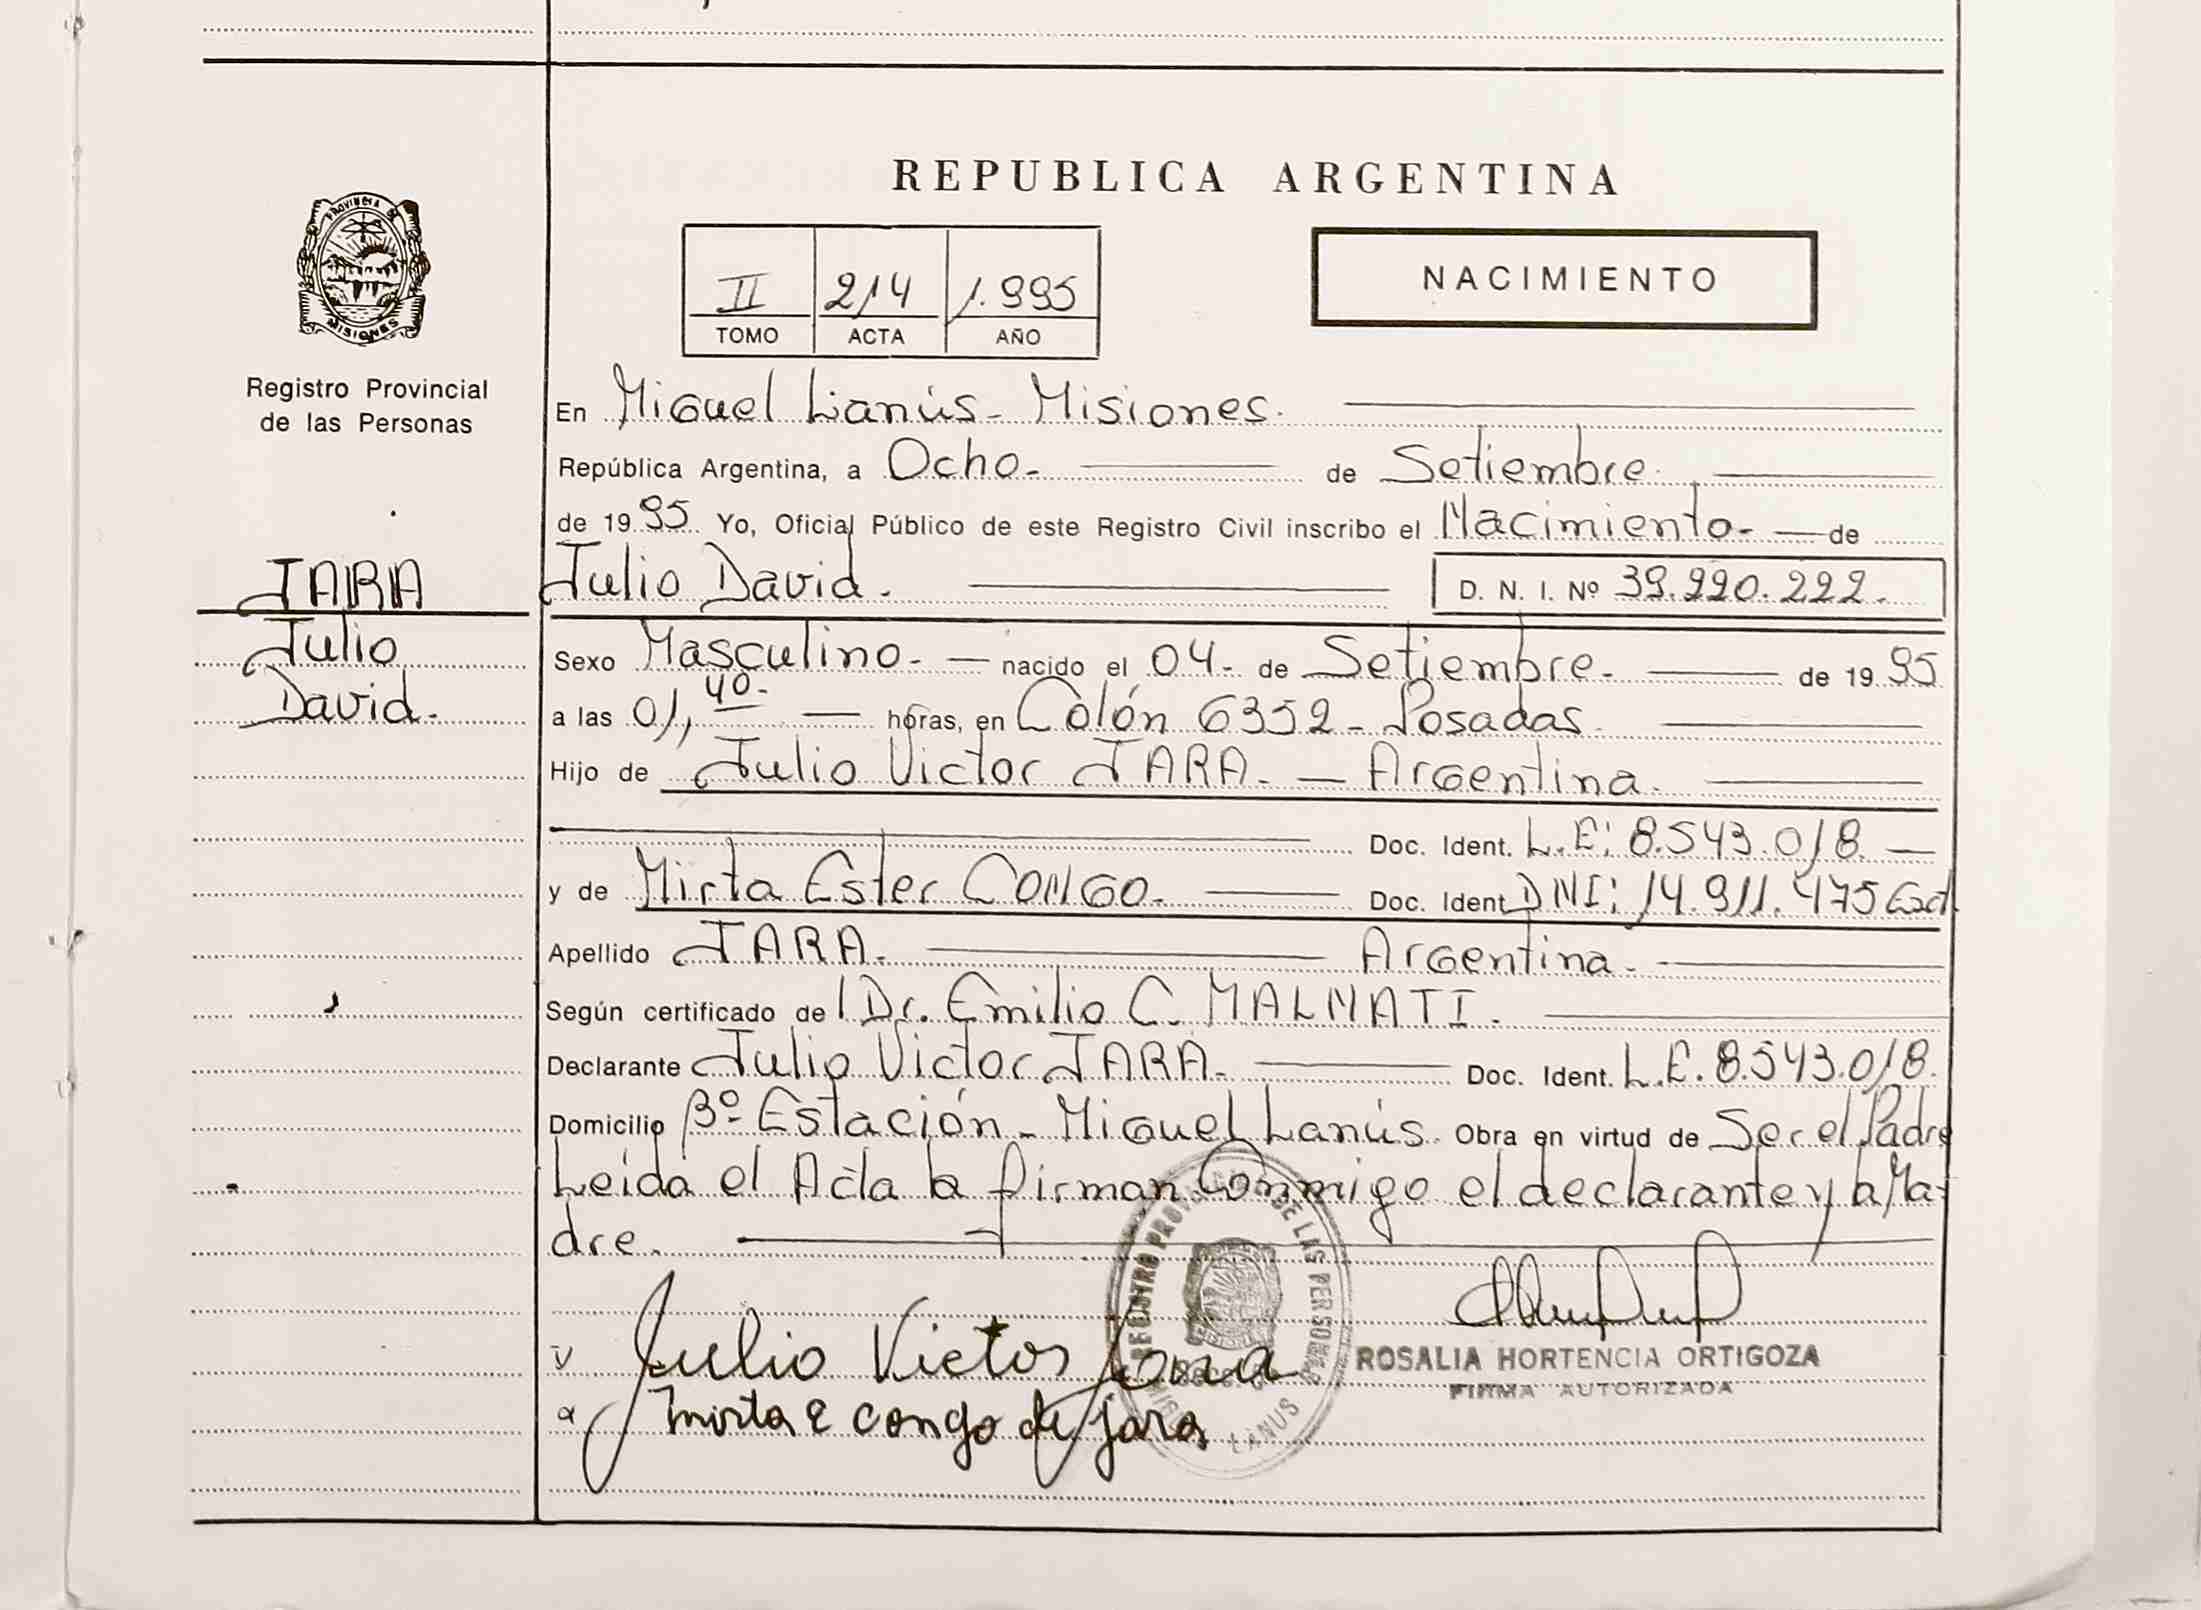 REPUBLICA ARGENTINA
PROVINCIA DE
MISIONES
Registro Provincial
de las Personas
II 214 1.995
TOMO ACTA AÑO
NACIMIENTO
En Miguel Lanús - Misiones.
República Argentina, a Ocho. de Setiembre.
de 1995 Yo, Oficial Público de este Registro Civil inscribo el Nacimiento. de
JARA
Julio David. D. N. I. Nº 39.220.222.
Julio
David.
Sexo Masculino. nacido el 04. de Setiembre. de 1995
a las 01,40. horas, en Colón 6352 - Posadas.
Hijo de Julio Victor JARA. - Argentina.
Doc. Ident. L.E: 8.543.018.
y de Mirta Ester CONGO. Doc. Ident. DNI: 14.911.475
Apellido JARA. Argentina.
Según certificado del Dr. Emilio C. MALNATI.
Declarante Julio Victor JARA. Doc. Ident. L.E. 8.543.018.
Domicilio Bº Estación - Miguel Lanús. Obra en virtud de Ser el Padre
Leida el Acta la firman Conmigo el declarante y la Ma-
dre.
REGISTRO PROVINCIAL DE LAS PERSONAS
LANUS
Julio Victor Jara
Mirta E Congo de Jara
ROSALIA HORTENCIA ORTIGOZA
FIRMA AUTORIZADA